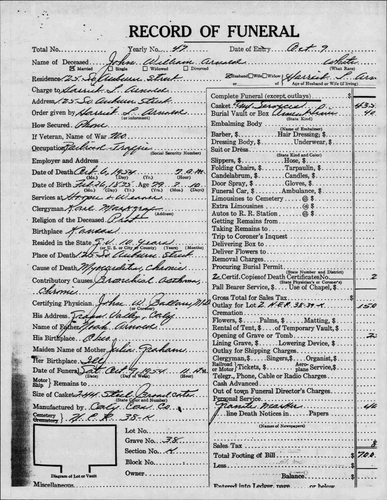 RECORD OF FUNERAL
Total No. Yearly No. 47 Date of Entry Oct. 9
Name of Deceased John William Arnold White
Married Single Widowed Divorced (What Race)
Residence 125 So Auburn Street Husband Wife Widow Harriet L. Arn
Age of Husband or Wife (if living)
Charge to Harriet L. Arnold
Address 125 So Auburn Street
Order given by Harriet L. Arnold
(or informant)
How Secured Phone
If Veteran, Name of War No.
Occupation Railroad Traffic
(Social Security Number)
Employer and Address
Date of Death Oct 6, 1954 7 A.M.
Date of Birth Feb 26, 1875 Age 79 7 10
Services at
Clergyman
Religion of the Deceased Prot
Birthplace Kansas
Resided in the State 5 10 years
(or U. S. or City of County)
Place of Death 125 So Auburn Street
Cause of Death Myocarditis, chronic
Contributory Causes Bronchial Asthma,
Chronic
Certifying Physician John W. M.D.
His Address Grass Valley, Calif
Name of Father Noah Arnold
His Birthplace Ohio
Maiden Name of Mother Julia Graham
Her Birthplace Ill
Date of Funeral Sat Oct 9, 1954 11 A.M.
Motor Ship Remains to
Size of Casket
(State Color and Number)
Manufactured by Co.
Cemetery
Crematory
Lot No.
Grave No. 38
Section No. K
Block No.
Owner
Diagram of Lot or Vault
Miscellaneous
Complete Funeral (except outlays)
Casket
Burial Vault or Box
(State Kind)
Embalming Body
(Name of Embalmer)
Barber, $ Hair Dressing: $
Dressing Body, $ Underwear, $
Suit or Dress
(State Kind and Color)
Slippers, $ Hose, $
Folding Chairs, $ Tarpaulin, $
Candelabrum, $ Candles, $
Door Spray, $ Gloves, $
Funeral Car, $ Ambulance, $
Limousines to Cemetery @ $
Extra Limousines @ $
Autos to R. R. Station @ $
Getting Remains from
Taking Remains to
Trip to Coroner's Inquest
Delivering Box to
Deliver Flowers to
Removal Charges
Procuring Burial Permit
(State Number and District)
2 Certif. Copies Death Certificate No. 2
(State Physician's or Coroner's)
Pall Bearer Service Use of Chapel, $
Gross Total for Sales Tax $
Outlay for Lot 150
Cremation
Flowers, $ Palms, $ Matting, $
Rental of Tent, $ of Temporary Vault, $
Opening of Grave or Tomb
Lining Grave, $ Lowering Device, $
Outlay for Shipping Charges
Clergyman, $ Singers, $ Organist, $
Telegr., Phone, Cable or Radio Charges
Cash Advanced
Out of town Funeral Director's Charges
Personal Service
Granite Marker 40
line Death Notices in Papers
Sales Tax
Total Footing of Bill $
Less
Balance
Entered into Ledger, page or below